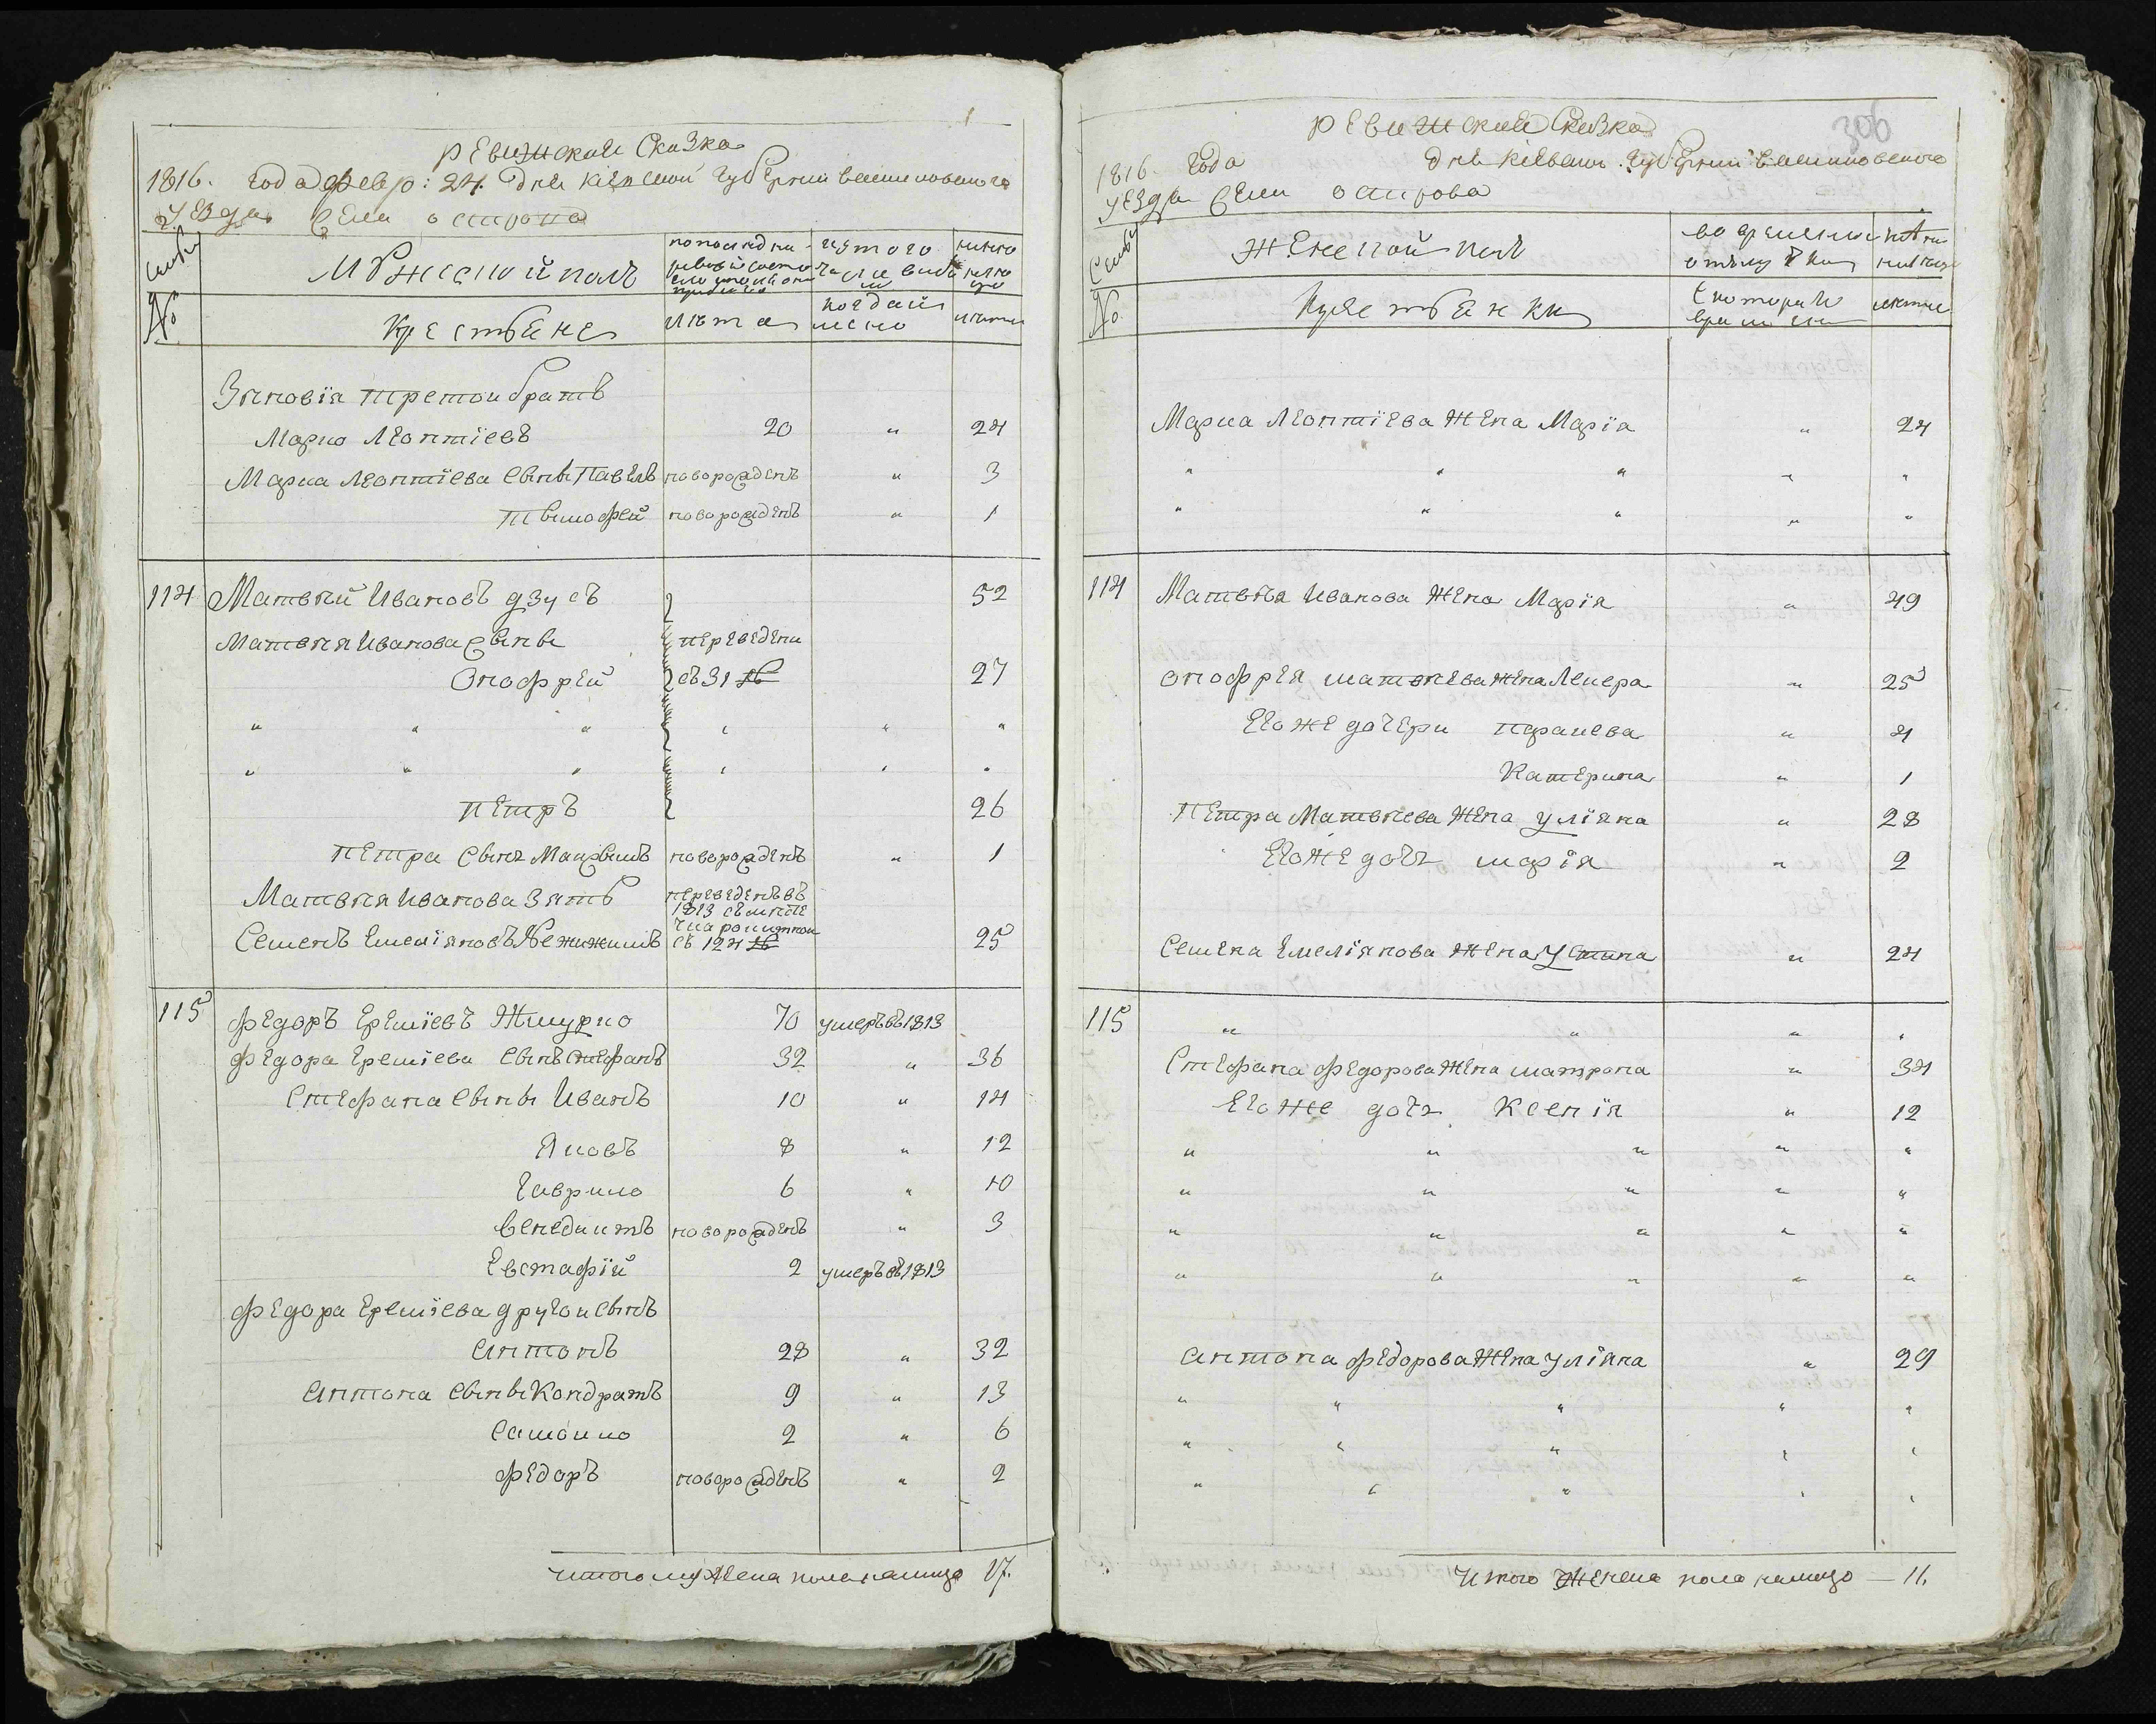 ревижская Сказка
1816. года февр: 24. дня кіевской губерніи васильковского
уезда села острова
семьи
№
Мужеской полъ
крестьяне
по последней ревизіи состояло
лета
изъ того числа выбыло
когда имено
ныне налицо
лета
Зѣновія третои братъ
Марко Леонтіевъ 20 " 24
Марка Леонтіева сыны Павелъ новорожденъ " 3
Тимофей новорожденъ " 1
114 Матвѣй Ивановъ дзусъ 52
Матвѣя Иванова сыны переведены
Онофрей съ 31 № 27
" " " " " "
" " " " " "
Петръ 26
Петра сынъ Максимъ новорожденъ " 1
Матвѣя Иванова зять переведенъ въ
1813 съ
Семенъ Емеліяновъ съ 124 № 25
115 Федоръ Еремієвъ Жмурко 70 умеръ въ 1813
Федора Еремієва сынъ Стефанъ 32 " 36
Стефана сыны Иванъ 10 " 14
Яковъ 8 " 12
Гаврило 6 " 10
Венедиктъ новорожденъ " 3
Евстафій 2 умеръ въ 1813
Федора Еремієва другои сынъ
Антонъ 28 " 32
Антона сыны Кондратъ 9 " 13
Самоило 2 " 6
Федоръ новорожденъ " 2
Итого мужеска пола налицо 17.
306
ревижская Сказка
1816. года дня кіевской губерніи васильковского
уезда села острова
Семьи
№
Женской полъ
крестьянки
во временной отлучке
с которого времени
ныне налицо
лета
Марка Леонтіева жена Марія " 24
" " " " "
" " " " "
114 Матвѣя Иванова жена Марія " 49
Онофрея Матвѣева жена Ликера " 25
Его же дочери Параcева " 4
Катерина " 1
Петра Матвѣева жена Уліяна " 28
Его же дочь Марія " 2
Семена Емеліянова жена Устина " 24
115 " " " "
Стефана Федорова жена Матрона " 34
Его же дочь Ксенія " 12
" " " " "
" " " " "
" " " " "
" " " " "
Антона Федорова жена Уліяна " 29
" " " " "
" " " " "
" " " " "
Итого женска пола налицо — 11.